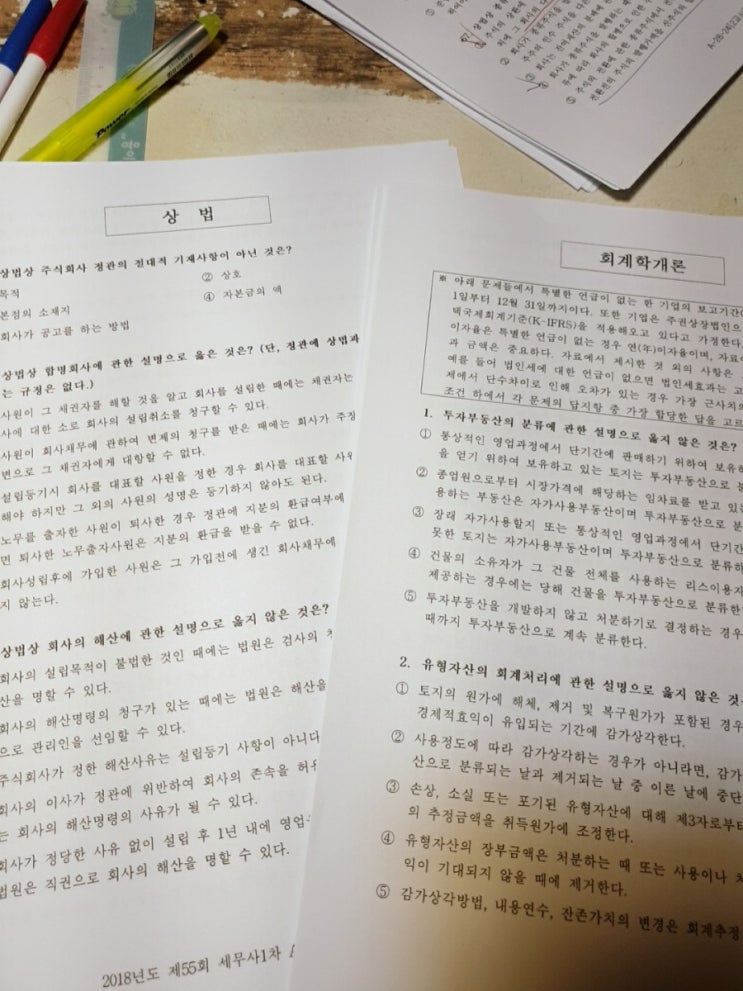 Power
상 법
상법상 주식회사 정관의 절대적 기재사항이 아닌 것은?
목적
② 상호
본점의 소재지
④ 자본금의 액
회사가 공고를 하는 방법
상법상 합명회사에 관한 설명으로 옳은 것은? (단, 정관에 상법과
는 규정은 없다.)
사원이 그 채권자를 해할 것을 알고 회사를 설립한 때에는 채권자는
사에 대한 소로 회사의 설립취소를 청구할 수 있다.
사원이 회사채무에 관하여 변제의 청구를 받은 때에는 회사가 주장
변으로 그 채권자에게 대항할 수 없다.
설립등기시 회사를 대표할 사원을 정한 경우 회사를 대표할 사원
해야 하지만 그 외의 사원의 성명은 등기하지 않아도 된다.
노무를 출자한 사원이 퇴사한 경우 정관에 지분의 환급여부에
면 퇴사한 노무출자사원은 지분의 환급을 받을 수 없다.
회사성립후에 가입한 사원은 그 가입전에 생긴 회사채무에
지 않는다.
상법상 회사의 해산에 관한 설명으로 옳지 않은 것은?
회사의 설립목적이 불법한 것인 때에는 법원은 검사의
산을 명할 수 있다.
회사의 해산명령의 청구가 있는 때에는 법원은 해산을
으로 관리인을 선임할 수 있다.
주식회사가 정한 해산사유는 설립등기 사항이 아니다
회사의 이사가 정관에 위반하여 회사의 존속을 허용
는 회사의 해산명령의 사유가 될 수 있다.
회사가 정당한 사유 없이 설립 후 1년 내에 영업
법원은 직권으로 회사의 해산을 명할 수 있다.
2018년도 제55회 세무사1차
회계학개론
※ 아래 문제들에서 특별한 언급이 없는 한 기업의 보고기간
1일부터 12월 31일까지이다. 또한 기업은 주권상장법인으
택국제회계기준(K-IFRS)을 적용해오고 있다고 가정한다.
이자율은 특별한 언급이 없는 경우 연(年)이자율이며, 자료
과 금액은 중요하다. 자료에서 제시한 것 외의 사항은
예를 들어 법인세에 대한 언급이 없으면 법인세효과는 고
제에서 단수차이로 인해 오차가 있는 경우 가장 근사치의
조건 하에서 각 문제의 답지항 중 가장 합당한 답을 고르
1. 투자부동산의 분류에 관한 설명으로 옳지 않은 것은?
① 통상적인 영업과정에서 단기간에 판매하기 위하여 보유하
을 얻기 위하여 보유하고 있는 토지는 투자부동산으로
② 종업원으로부터 시장가격에 해당하는 임차료를 받고 있
용하는 부동산은 자가사용부동산이며 투자부동산으로 분
③ 장래 자가사용할지 또는 통상적인 영업과정에서 단기간
못한 토지는 자가사용부동산이며 투자부동산으로 분류하
④ 건물의 소유자가 그 건물 전체를 사용하는 리스이용자
제공하는 경우에는 당해 건물을 투자부동산으로 분류한
⑤ 투자부동산을 개발하지 않고 처분하기로 결정하는 경우
때까지 투자부동산으로 계속 분류한다.
2. 유형자산의 회계처리에 관한 설명으로 옳지 않은 것
① 토지의 원가에 해체, 제거 및 복구원가가 포함된 경우
경제적효익이 유입되는 기간에 감가상각한다.
② 사용정도에 따라 감가상각하는 경우가 아니라면, 감가
산으로 분류되는 날과 제거되는 날 중 이른 날에 중단
③ 손상, 소실 또는 포기된 유형자산에 대해 제3자로부터
의 추정금액을 취득원가에 조정한다.
④ 유형자산의 장부금액은 처분하는 때 또는 사용이나 처
익이 기대되지 않을 때에 제거한다.
⑤ 감가상각방법, 내용연수, 잔존가치의 변경은 회계추정